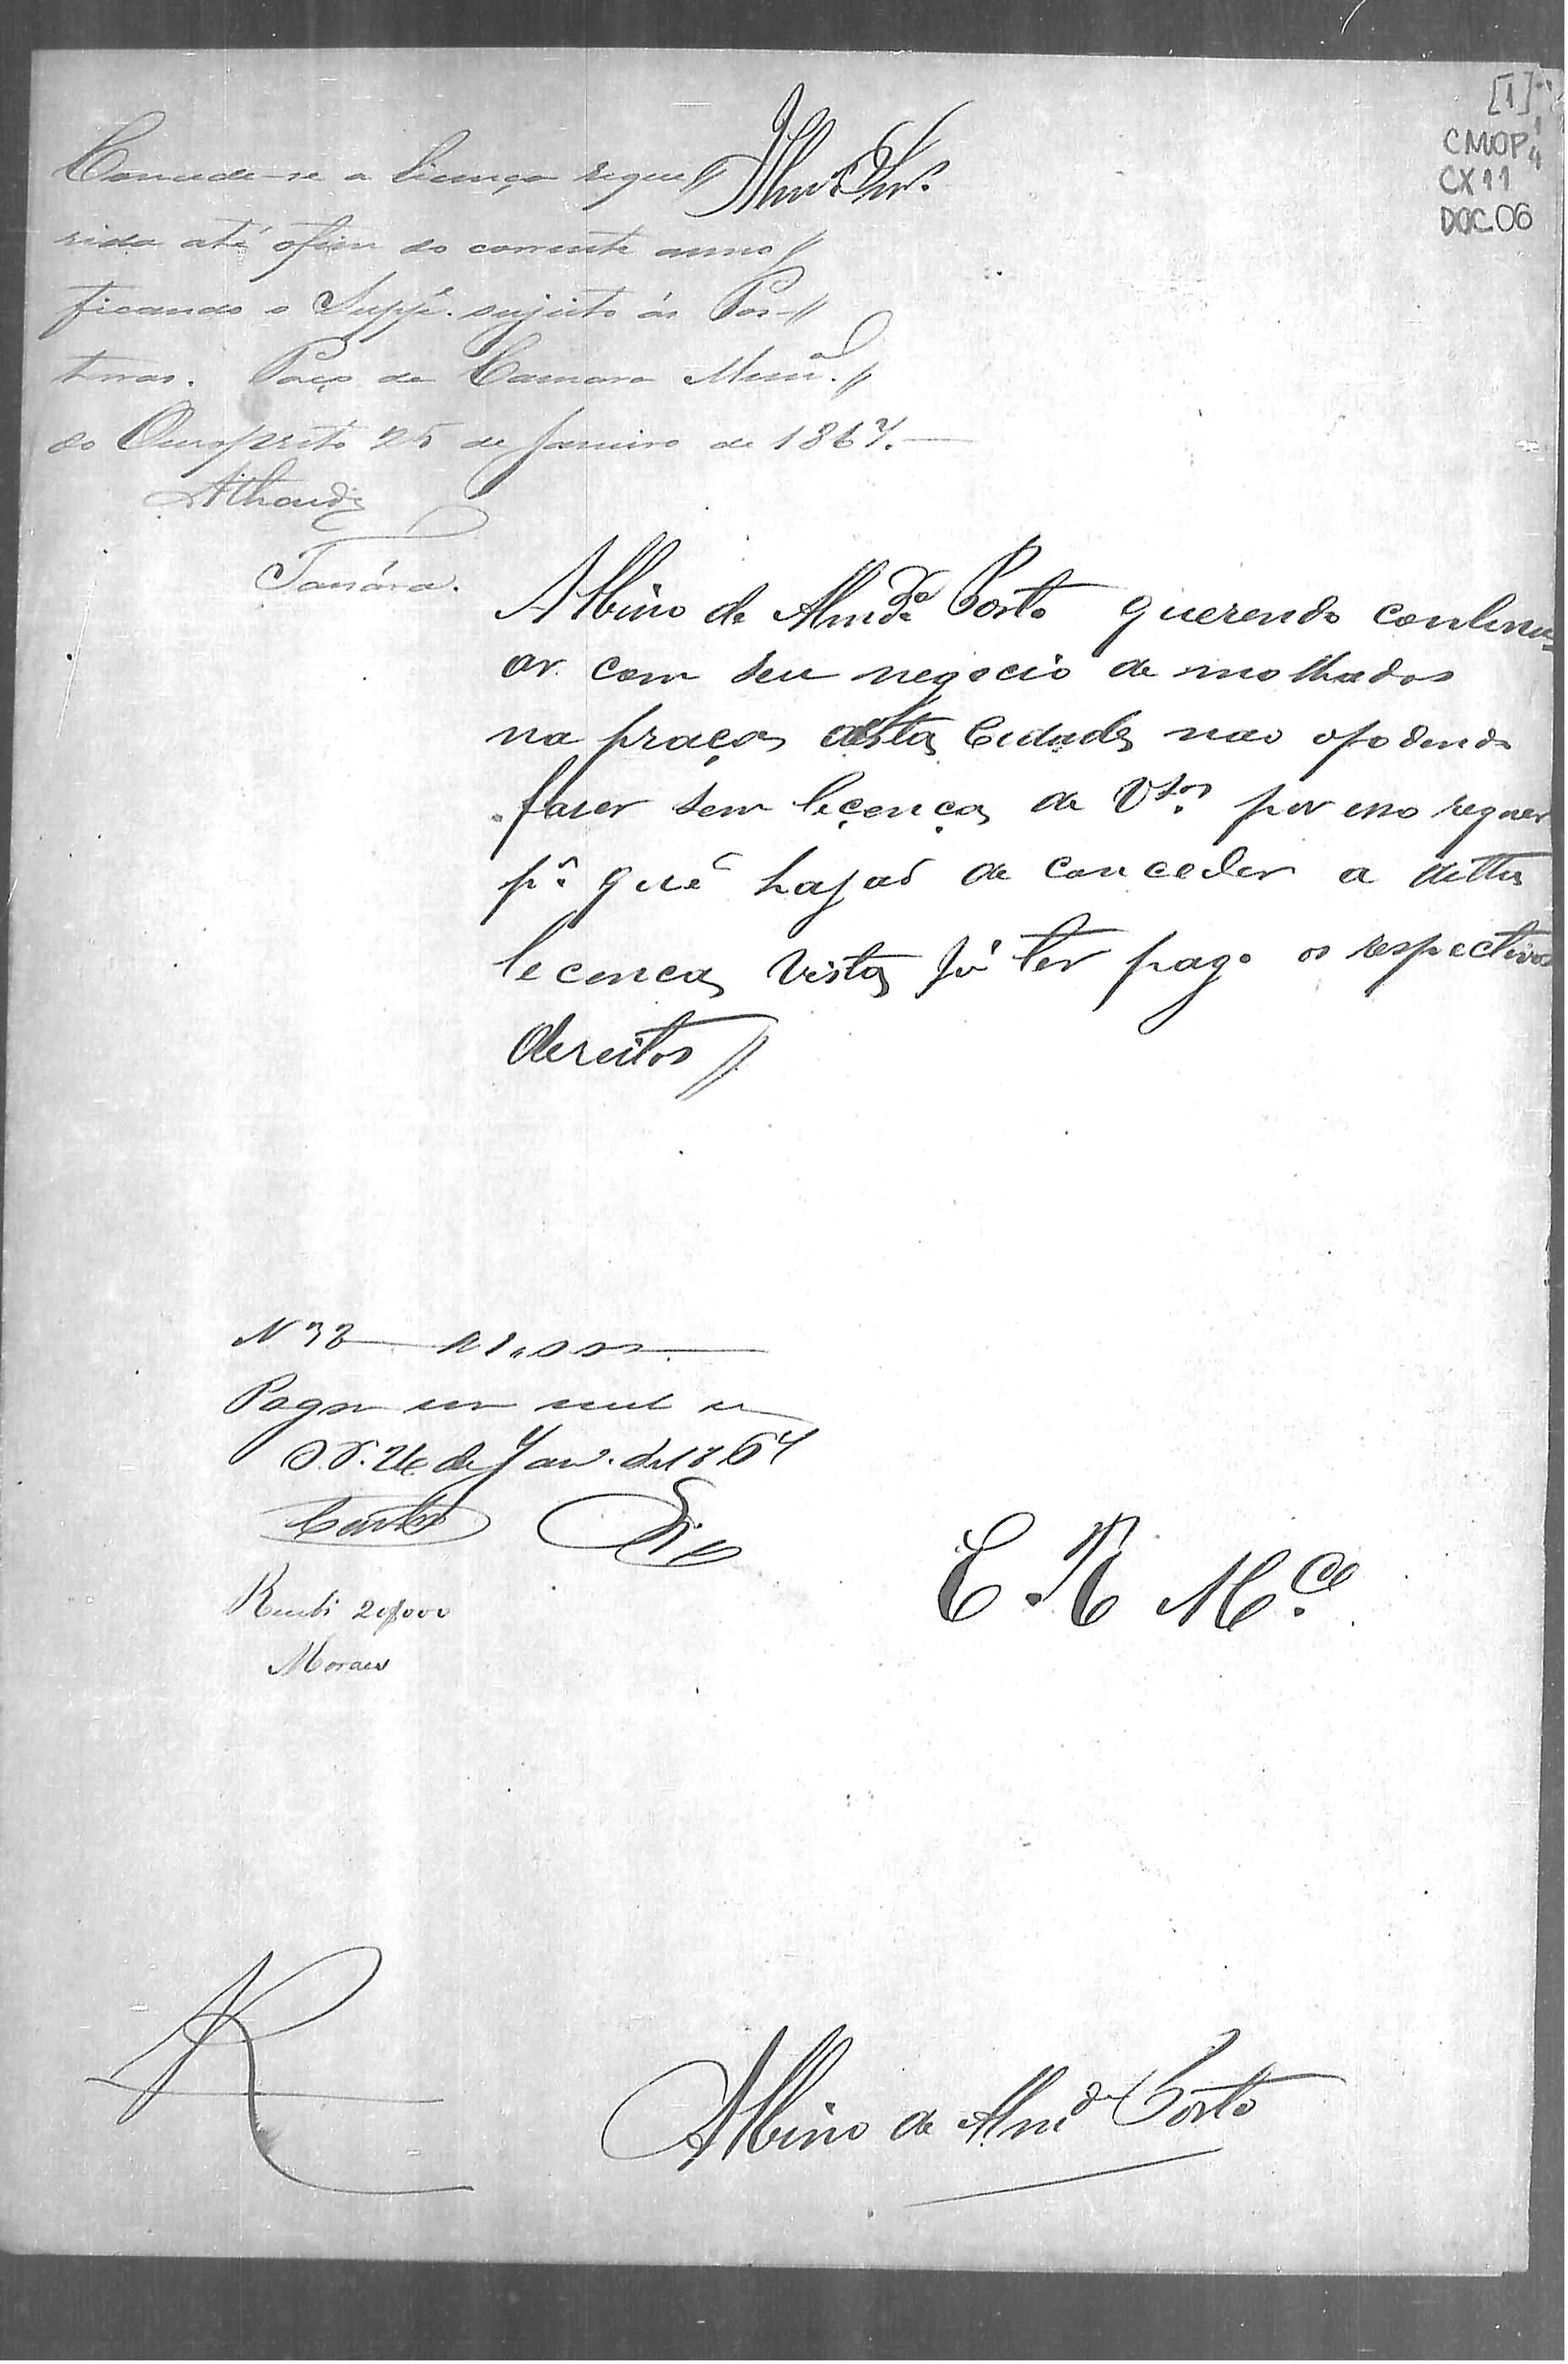 [1]
CMOP 1/4
CX 11
DOC. 06
Illmos Snrs.
Concede-se a licença reque//
rida até o fim do corrente anno//
ficando o Suppe. sujeito ás Pos-//
turas. Paço da Camara Munal.//
do Ouropreto 25 de Janeiro de 1867.
Tassára.
Albino de Almda Porto querendo continu=
ar com seu negocio de molhados
na praça desta Cidade nao o podendo
fazer sem leçença de VSas por isso requer
pa que hajao de conceder a ditta
lecenca vista já ter pago os respectivos
dereitos//
N 38
Pagou um mil rs
26 de Janro. de 1867
Recebi 20$000
Moraes
E. R. Mce.
Albino de Almda Porto